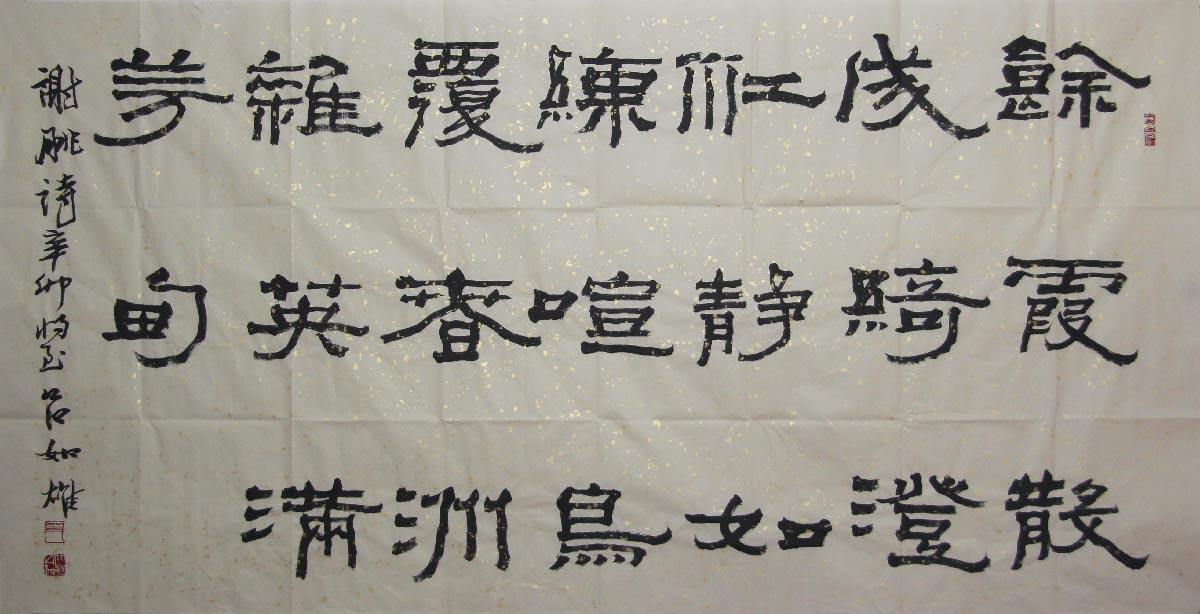 餘霞散
成綺澄
江静如
練喧鳥
覆春洲
雜英滿
芳甸
謝朓詩辛卯将至吕如雄